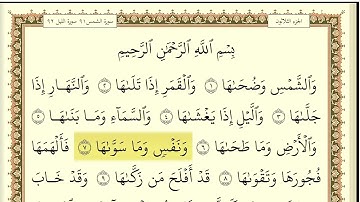 الجزء الثلاثون
سورة الشمس ٩١ سورة الليل ٩٢
بِسْمِ اللَّهِ الرَّحْمَٰنِ الرَّحِيمِ
وَالشَّمْسِ وَضُحَىٰهَا ١ وَالْقَمَرِ إِذَا تَلَىٰهَا ٢ وَالنَّهَارِ إِذَا
جَلَّىٰهَا ٣ وَاللَّيْلِ إِذَا يَغْشَىٰهَا ٤ وَالسَّمَاءِ وَمَا بَنَىٰهَا ٥
وَالْأَرْضِ وَمَا طَحَىٰهَا ٦ وَنَفْسٍ وَمَا سَوَّىٰهَا ٧ فَأَلْهَمَهَا
فُجُورَهَا وَتَقْوَىٰهَا ٨ قَدْ أَفْلَحَ مَن زَكَّىٰهَا ٩ وَقَدْ خَابَ